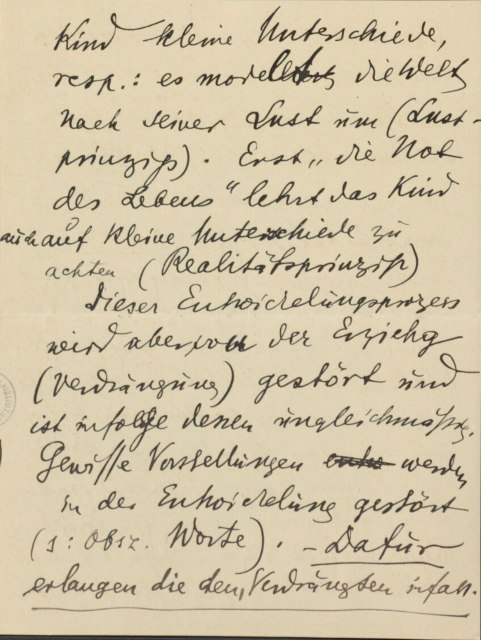 Kind kleine Unterschiede,
resp.: es modelt die Welt
nach seiner Lust um (Lust-
prinzip). Erst „die Not
des Lebens“ lehrt das Kind
auch auf kleine Unterschiede zu
achten (Realitätsprinzip)
Dieser Entwickelungsprozess
wird aber von der Erziehg
(Verdrängung) gestört und
ist infolge dessen ungleichmässig.
Gewisse Vorstellungen werden
in der Entwickelung gestört
(s: obsz. Worte). – Dafür
erlangen die dem Verdrängten